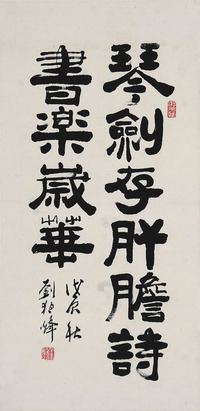 琴劍存肝膽詩
書樂歲華
戊辰秋
劉炳烽